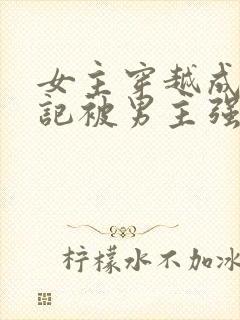 女主穿越成
記被男主强
柠檬水不加冰